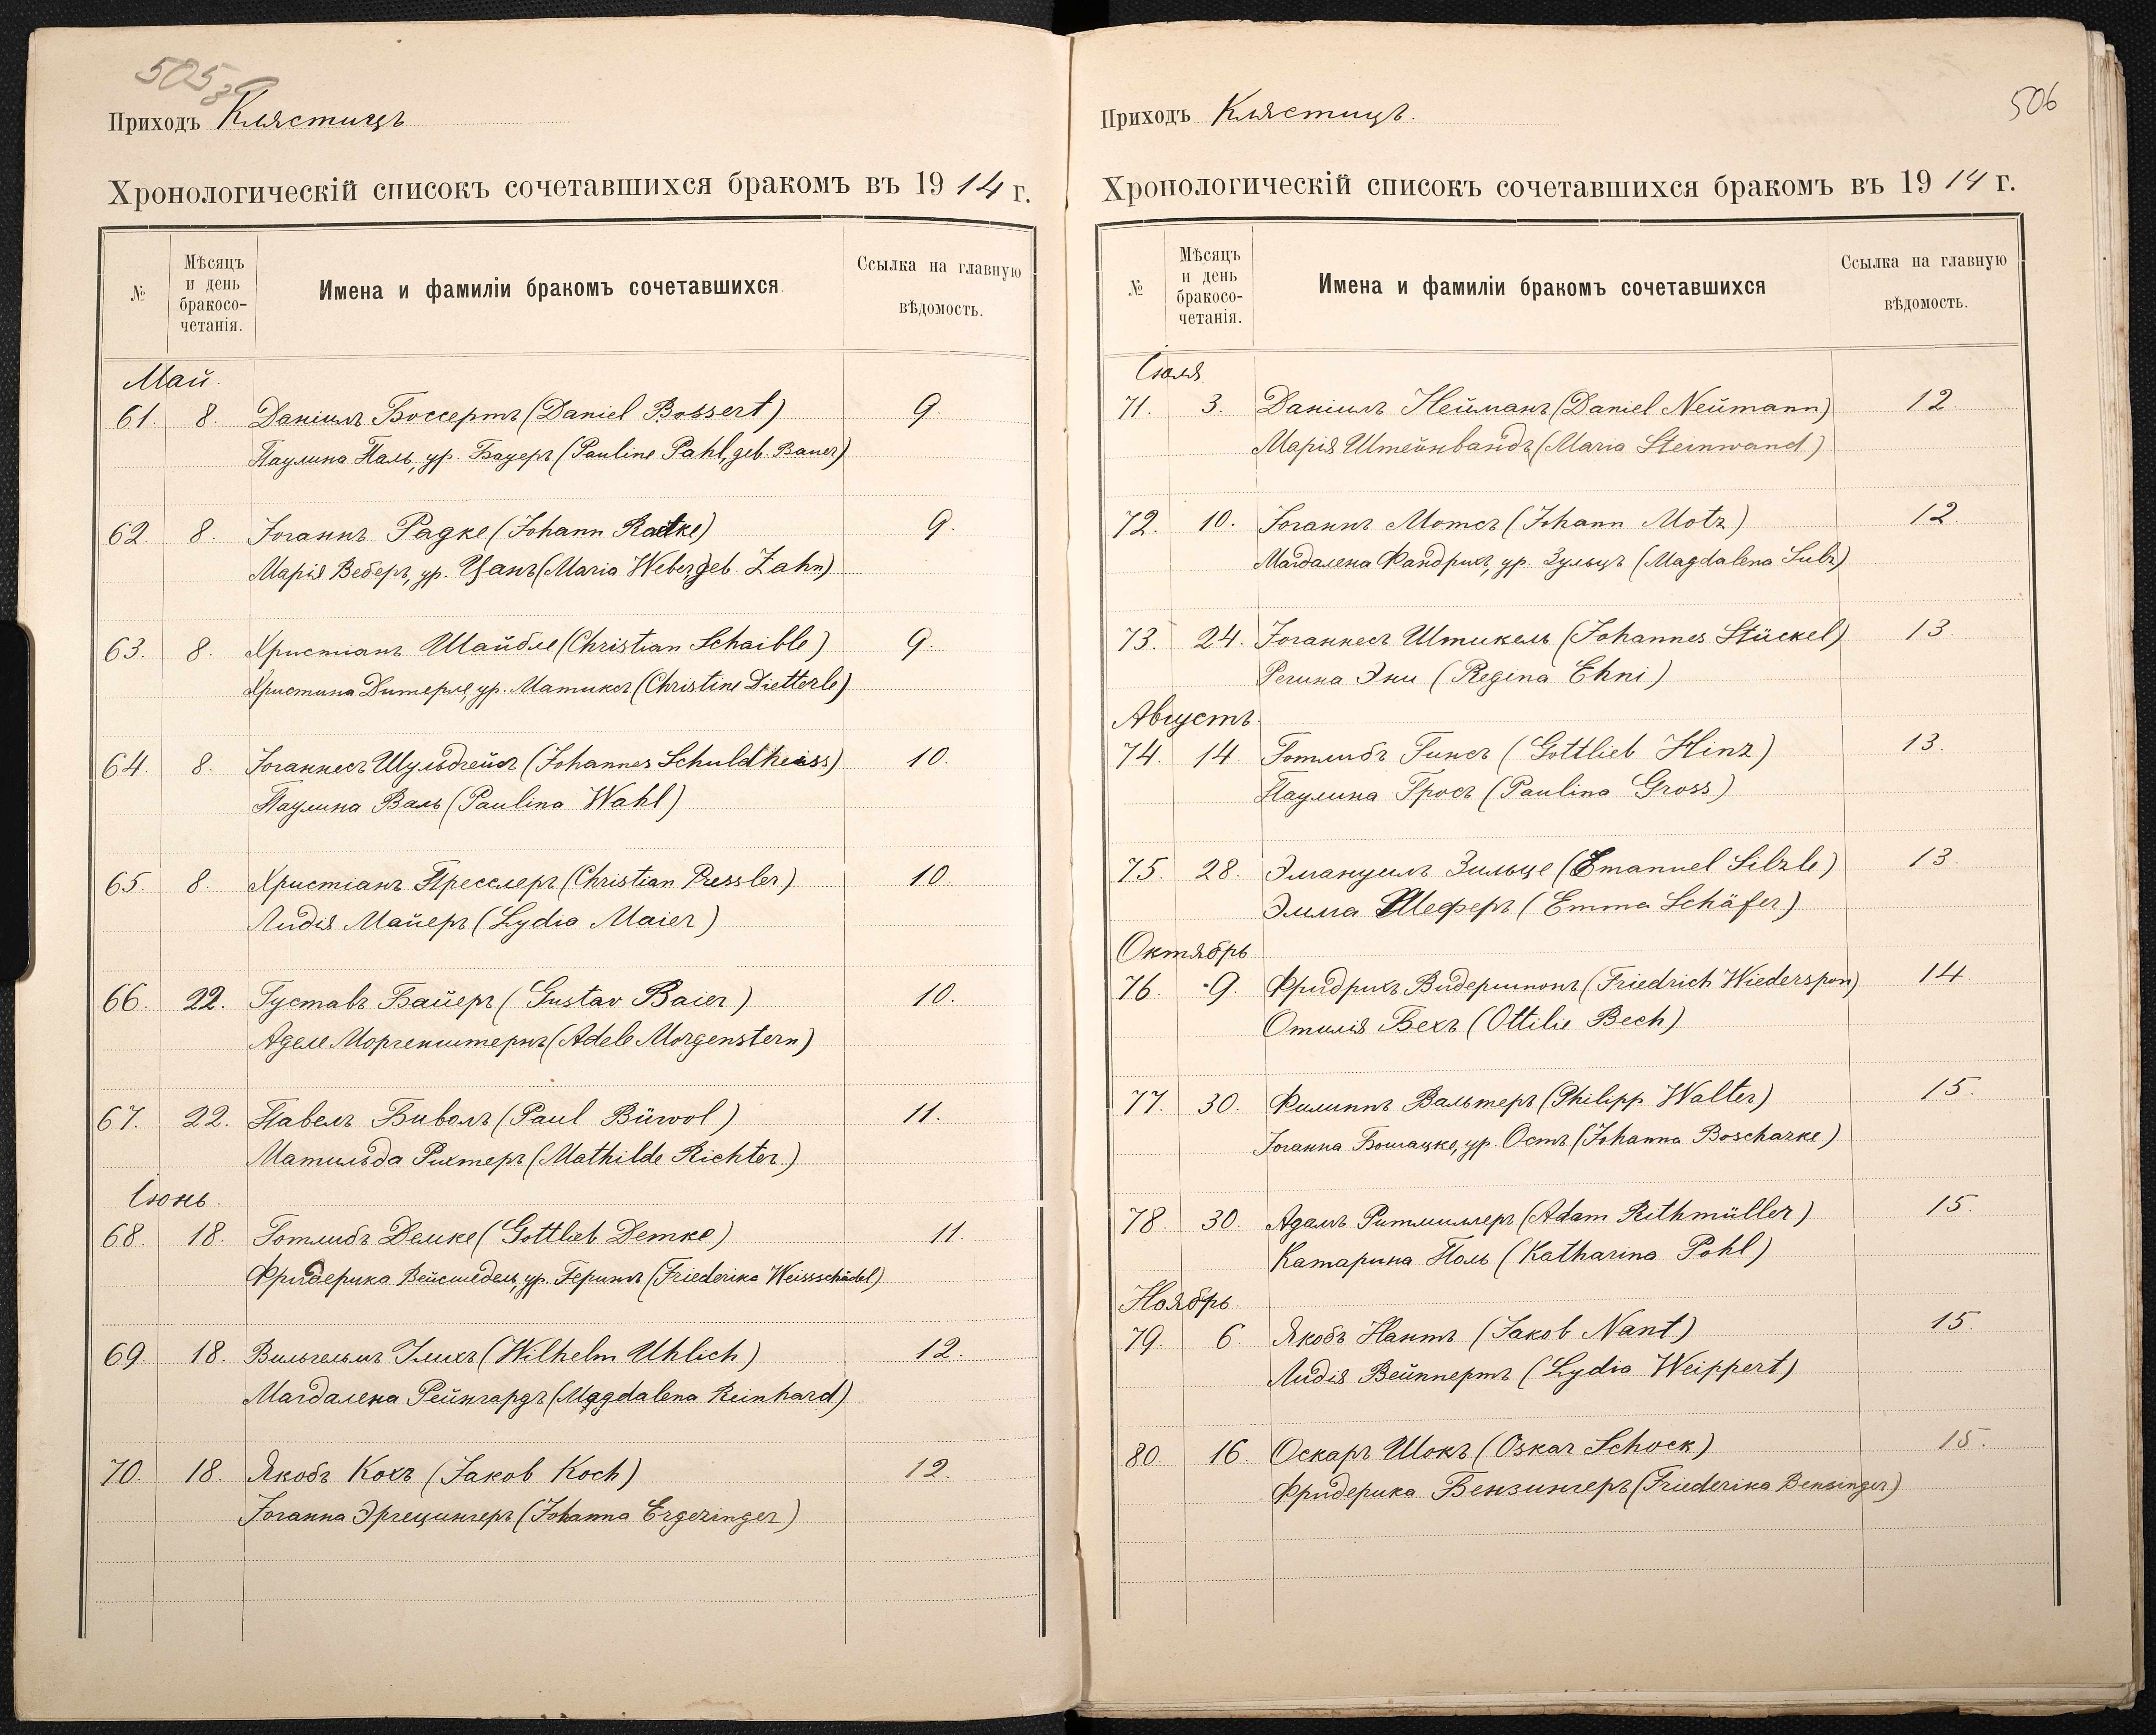 505
Приходъ Клястицъ
Хронологическій списокъ сочетавшихся бракомъ въ 1914 г.
№ Мѣсяцъ и день бракосо-четанія. Имена и фамиліи бракомъ сочетавшихся Ссылка на главную вѣдомость.
Май.
61. 8. Даніилъ Боссертъ (Daniel Bossert) 9.
Паулина Паль, ур. Бауеръ (Pauline Pahl, geb. Bauer)
62. 8. Іоганнъ Радке (Johann Radke) 9.
Марія Веберъ, ур. Цанъ (Maria Weber geb. Zahn)
63. 8. Христіанъ Шайбле (Christian Schaible) 9.
Христина Дитерле, ур. Матиксъ (Christine Dietterle)
64. 8. Іоганнесъ Шульдгейсъ (Johannes Schuldheiss) 10.
Паулина Валь (Paulina Wahl)
65. 8. Христіанъ Пресслеръ (Christian Pressler) 10.
Лидія Майеръ (Lydia Maier)
66. 22. Густавъ Байеръ (Gustav Baier) 10.
Аделе Моргенштернъ (Adele Morgenstern)
67. 22. Павелъ Биволъ (Paul Büwol) 11.
Матильда Рихтеръ (Mathilde Richter.)
Іюнь.
68. 18. Готлибъ Демке (Gottlieb Demke) 11.
Фридерика Вейсшедель, ур. Герингъ (Friederika Weissschädel)
69. 18. Вильгельмъ Улихъ (Wilhelm Uhlich) 12.
Магдалена Рейнгардъ (Magdalena Reinhard)
70. 18. Якобъ Кохъ (Jakob Koch) 12.
Іоганна Эргецингеръ (Johanna Ergezinger)
506
Приходъ Клястицъ.
Хронологическій списокъ сочетавшихся бракомъ въ 1914 г.
№ Мѣсяцъ и день бракосо-четанія. Имена и фамиліи бракомъ сочетавшихся Ссылка на главную вѣдомость.
Іюля
71. 3. Даніилъ Нейманъ (Daniel Neümann) 12.
Марія Штейнвандъ (Maria Steinwand)
72. 10. Іоганнъ Мотсъ (Johann Motz) 12
Магдалена Фандрихъ, ур. Зульцъ (Magdalena Sulz)
73. 24. Іоганнесъ Штикель (Johannes Stückel) 13
Регина Эни (Regina Ehni)
Августъ.
74. 14 Готлибъ Гинсъ (Gottlieb Hinz) 13.
Паулина Гросъ (Paulina Gross)
75. 28. Эмануилъ Зильцле (Emanuel Silzle) 13.
Эмма Шеферъ (Emma Schäfer)
Октябрь
76. 9. Фридрихъ Видершпонъ (Friedrich Wiederspon) 14
Отилія Бехъ (Ottilie Bech)
77. 30. Филиппъ Вальтеръ (Philipp Walter) 15.
Іоганна Бошацке, ур. Остъ (Johanna Boschazke)
78. 30. Адамъ Ритмиллеръ (Adam Rithmüller) 15.
Катарина Поль (Katharina Pohl)
Ноябрь.
79. 6. Якобъ Нантъ (Jakob Nant) 15
Лидія Вейппертъ (Lydia Weippert)
80. 16. Оскаръ Шокъ (Oskar Schock) 15.
Фридерика Бензингеръ (Friederika Bensinger)